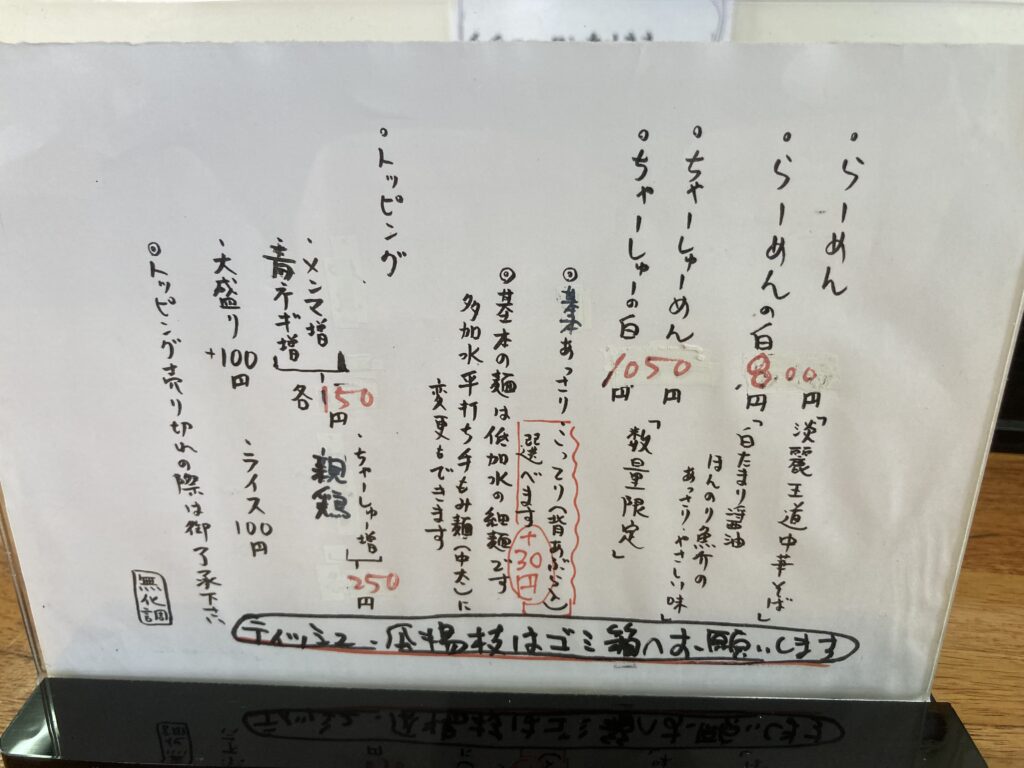 ・らーめん 800円「淡麗王道中華そば」
・らーめんの白 800円「白たまり醤油
ほんのり魚介の
あっさりやさしい味」
・ちゃーしゅーめん 1050円
・ちゃーしゅーの白 1050円「数量限定」
◎基本あっさり、こってり(背あぶら入)
選べます+30円
◎基本の麺は低加水の細麺です
多加水平打ち手もみ麺(中太)に
変更もできます
・トッピング
・メンマ増
・青ネギ増
各150円
・ちゃーしゅー増
親鶏
250円
・大盛り+100円
・ライス100円
◎トッピング売り切れの際は御了承下さい
無化調
ティッシュ・爪楊枝はゴミ箱へお願いします